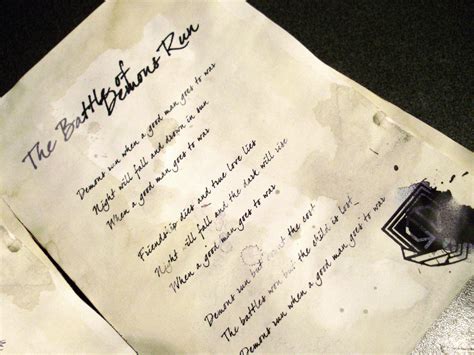 The Battle of
Demons Run
Demons run when a good man goes to war
Night will fall and drown in sun
When a good man goes to war
Friendship dies and true love lies
Night will fall and the dark will rise
When a good man goes to war
Demons run but count the cost
The battles won but the child is lost
Demons run when a good man goes to war